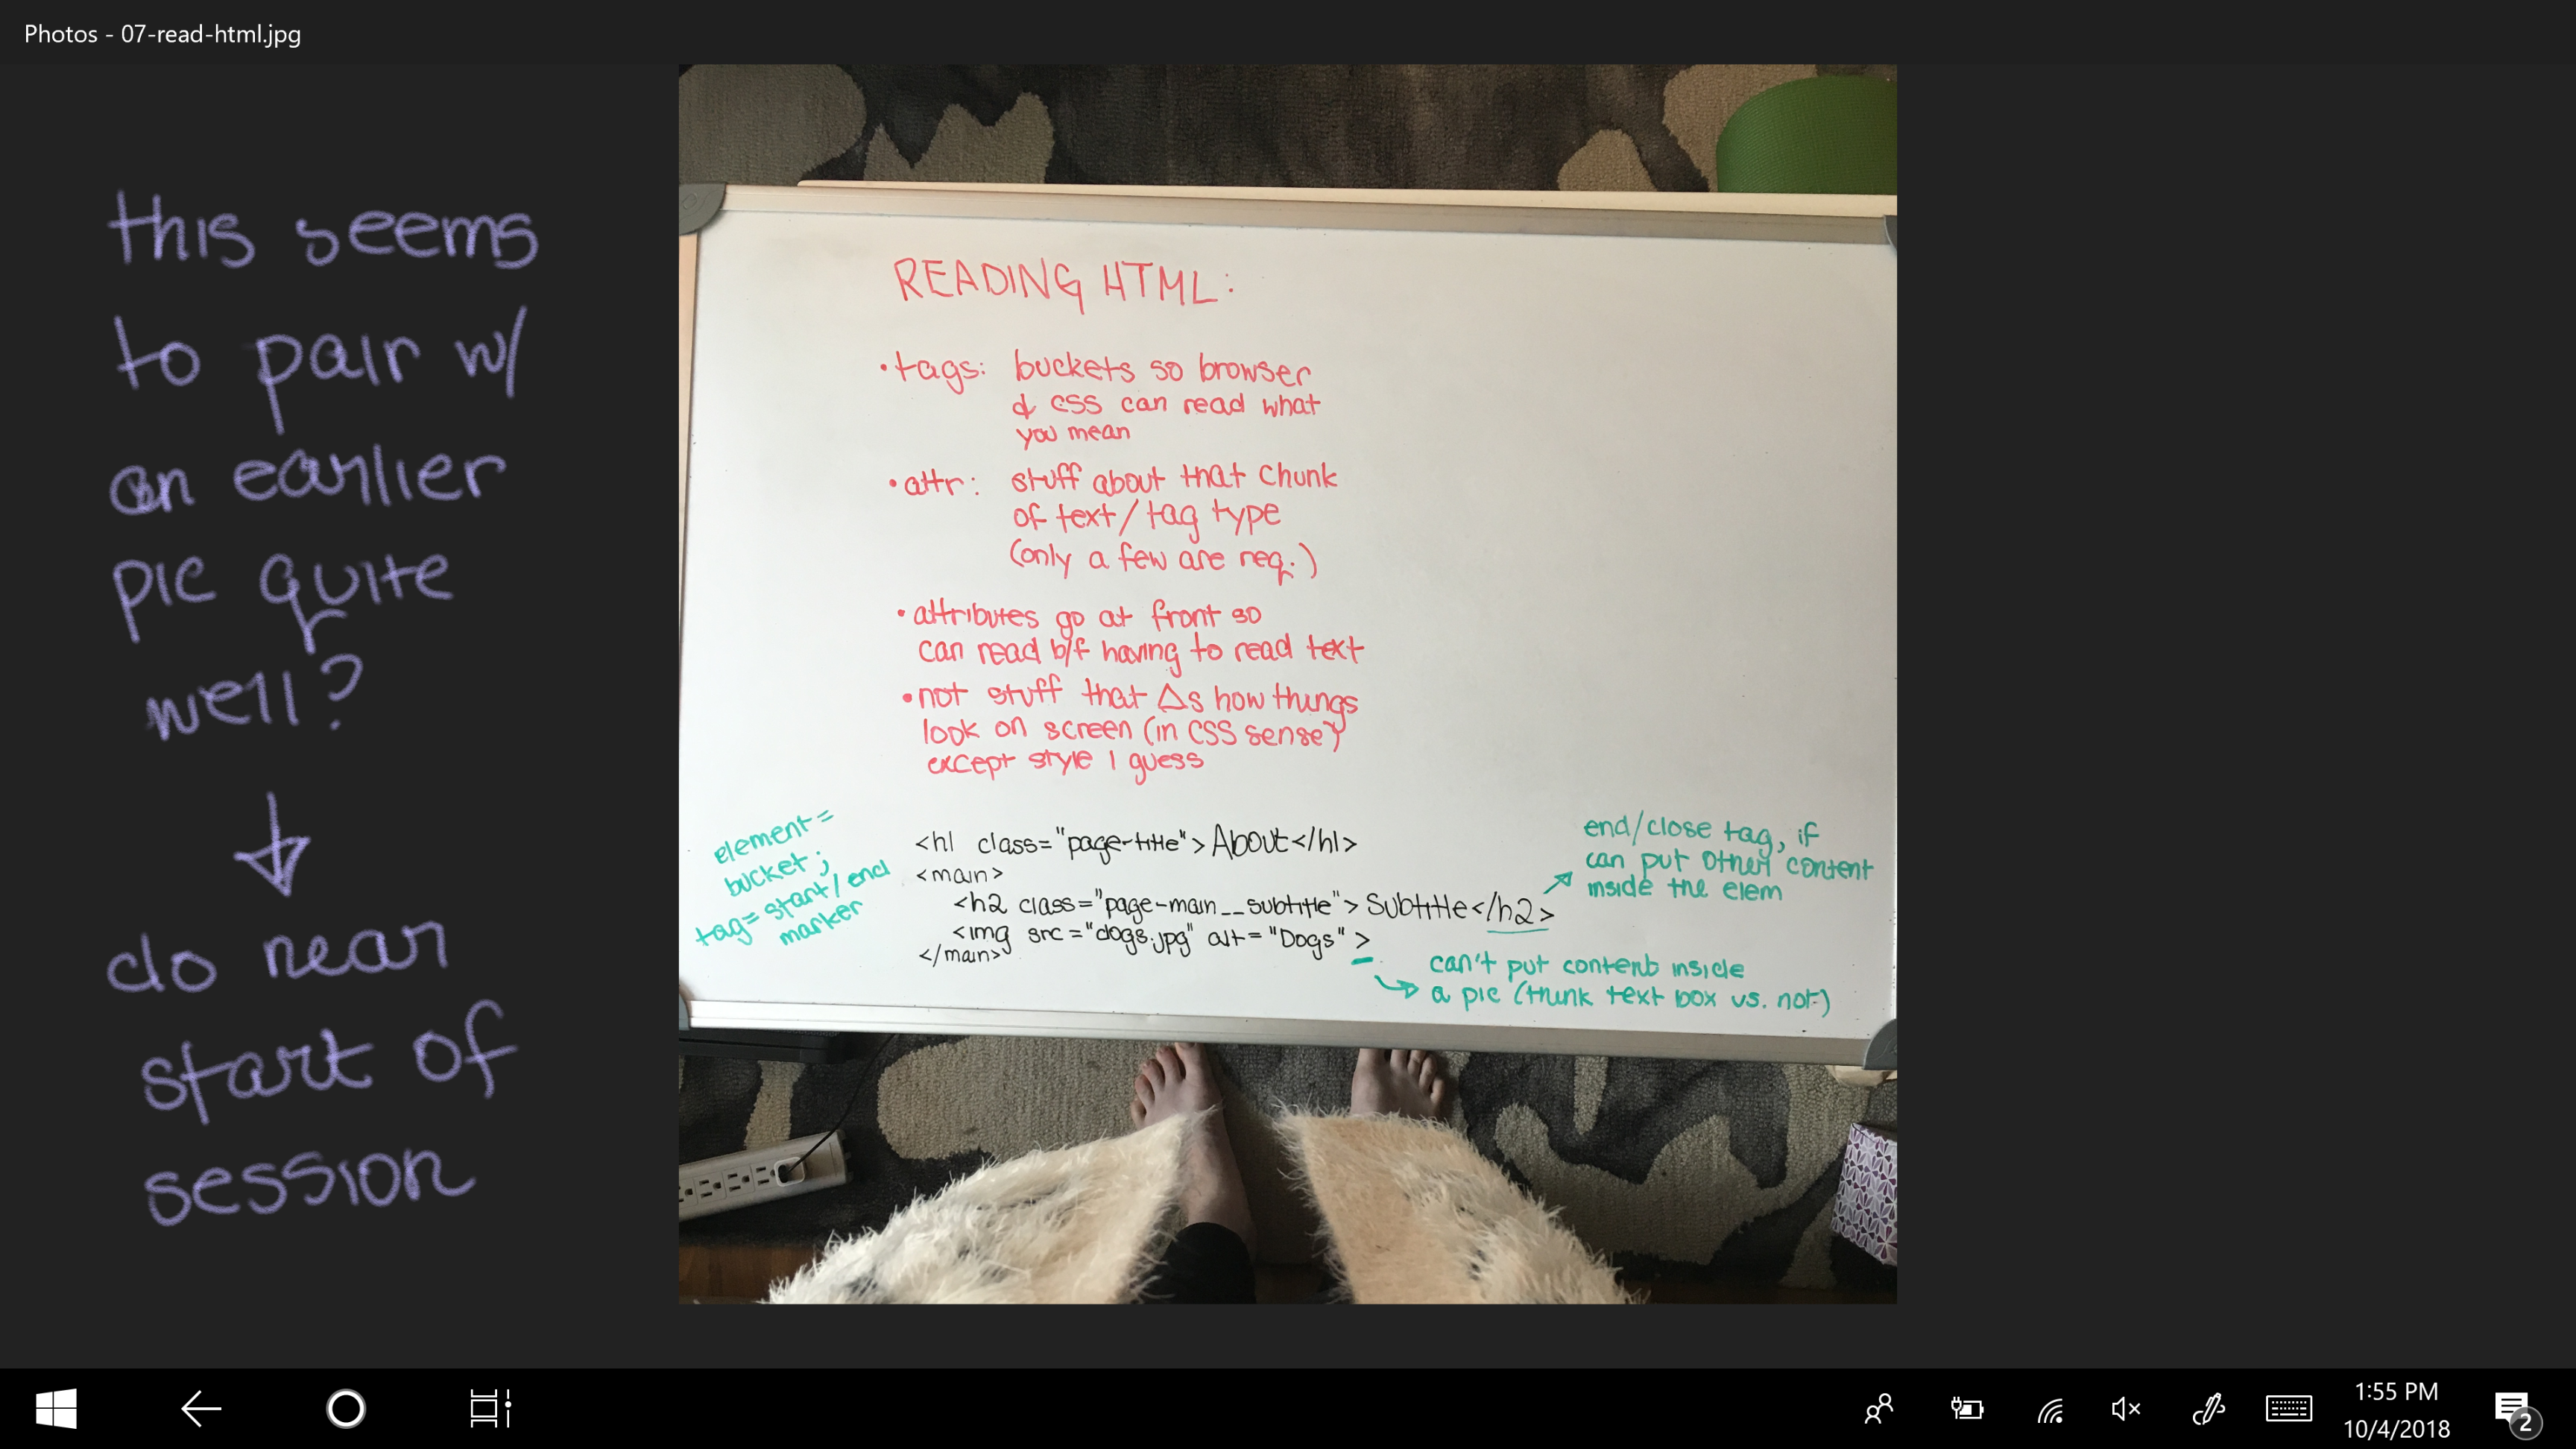 Photos - 07-read-html.jpg
this seems
to pair w/
an earlier
pic quite
well?
do near
start of
session
READING HTML:
• tags: buckets so browser
& css can read what
you mean
• attr: stuff about that chunk
of text/tag type
(only a few are req.)
• attributes go at front so
can read b/f having to read text
• not stuff that Δs how things
look on screen (in CSS sense)
except style I guess
element =
bucket;
tag = start/end
marker
<h1 class="page-title">About</h1>
<main>
<h2 class="page-main__subtitle">Subtitle</h2>
<img src="dogs.jpg" alt="Dogs">
</main>
end/close tag, if
can put other content
inside the elem
can't put content inside
a pic (think text box vs. not)
1:55 PM
10/4/2018
2